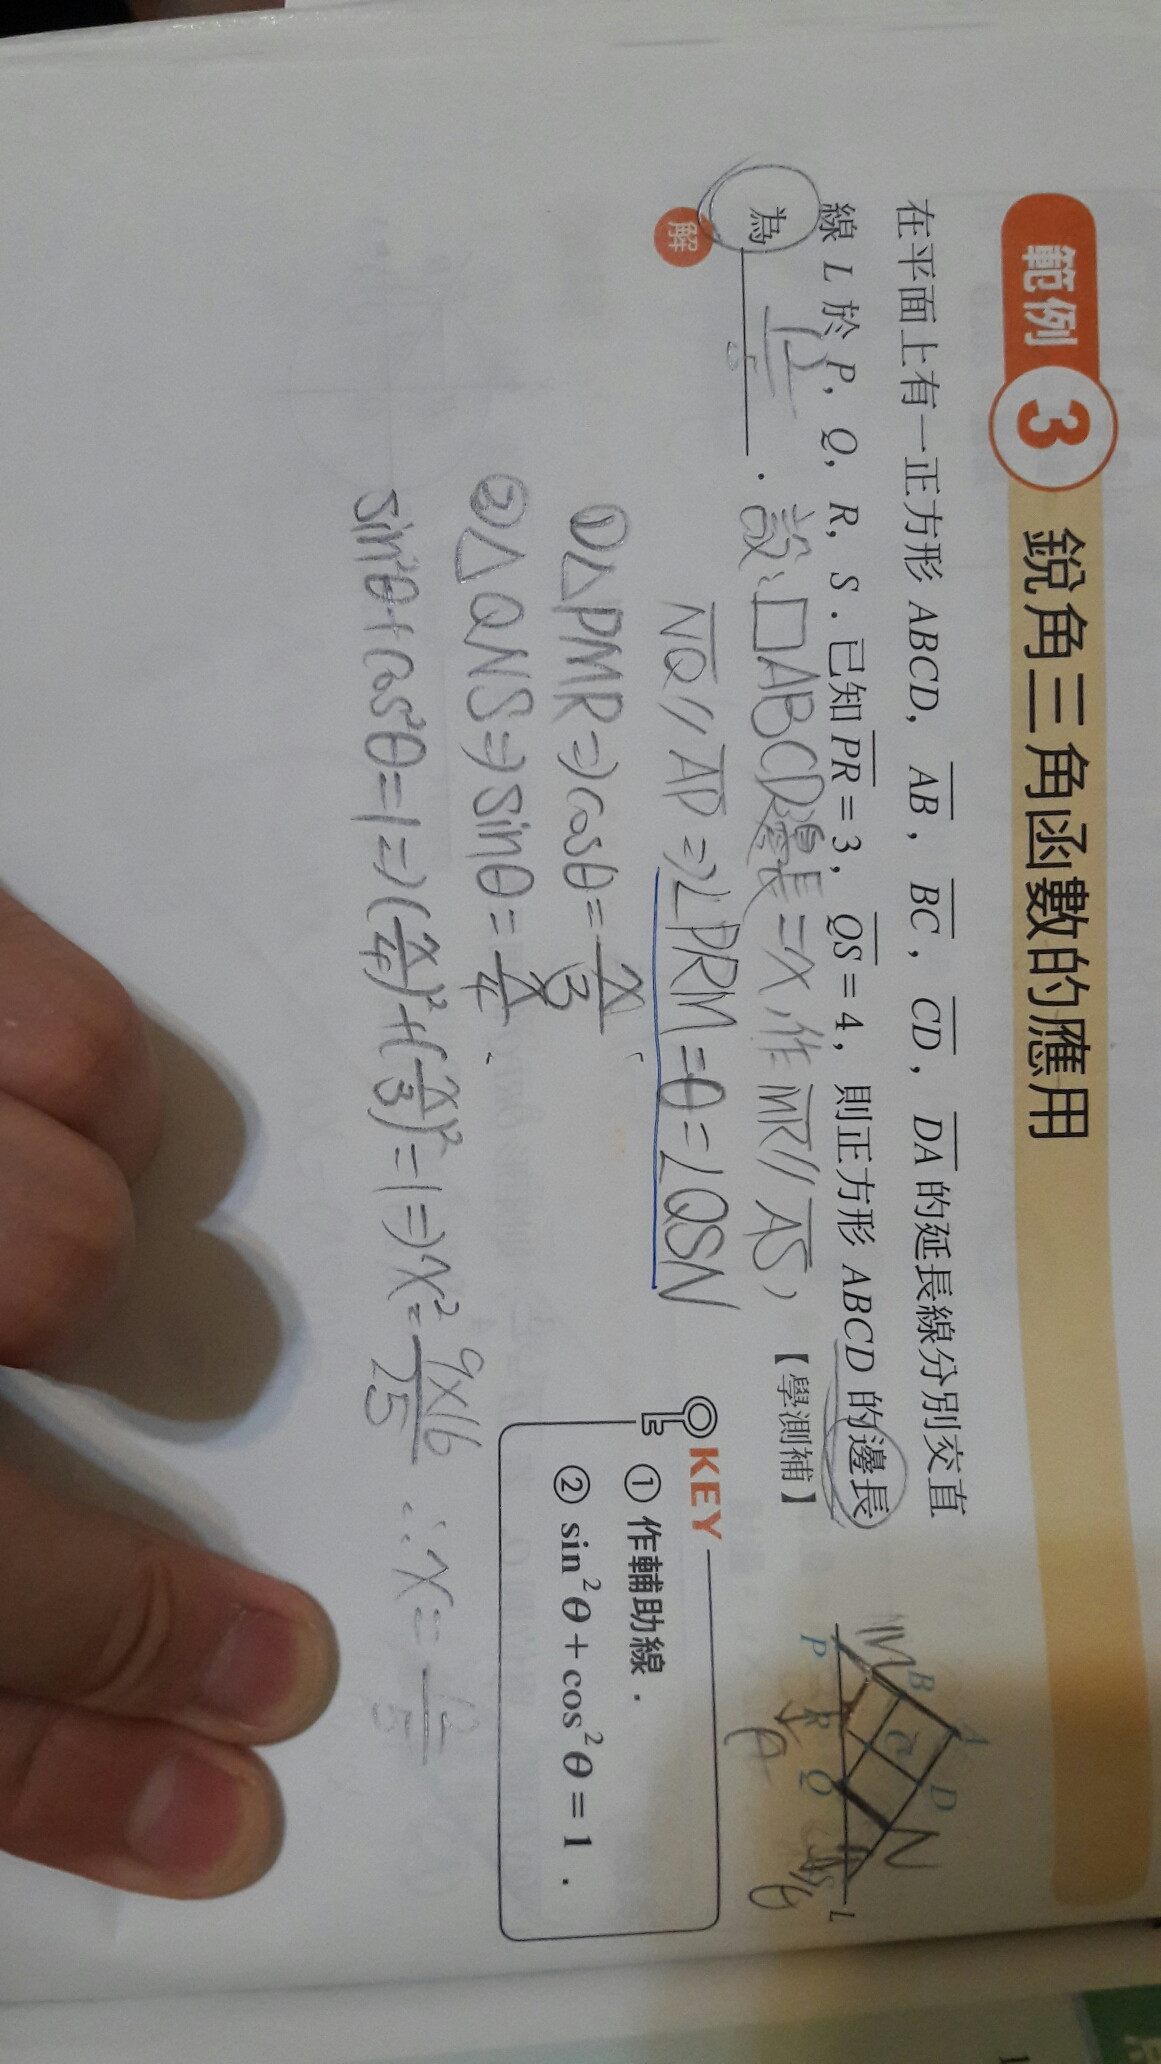 範例 3 銳角三角函數的應用
在平面上有一正方形 ABCD, AB, BC, CD, DA 的延長線分別交直
線 L 於 P, Q, R, S. 已知 PR = 3, QS = 4, 則正方形 ABCD 的邊長
為 12/5 . 【學測補】
解
設 □ABCD邊長=x, 作 MR // AS,
NQ // AP ⇒ ∠PRM = θ = ∠QSN
① △PMR ⇒ cosθ = x/3
② △QNS ⇒ sinθ = x/4
sin²θ + cos²θ = 1 ⇒ (x/4)² + (x/3)² = 1 ⇒ x² = 9×16/25 ∴ x = 12/5
KEY
① 作輔助線.
② sin²θ + cos²θ = 1 .
A
B
D
M
N
P
R
Q
L
θ